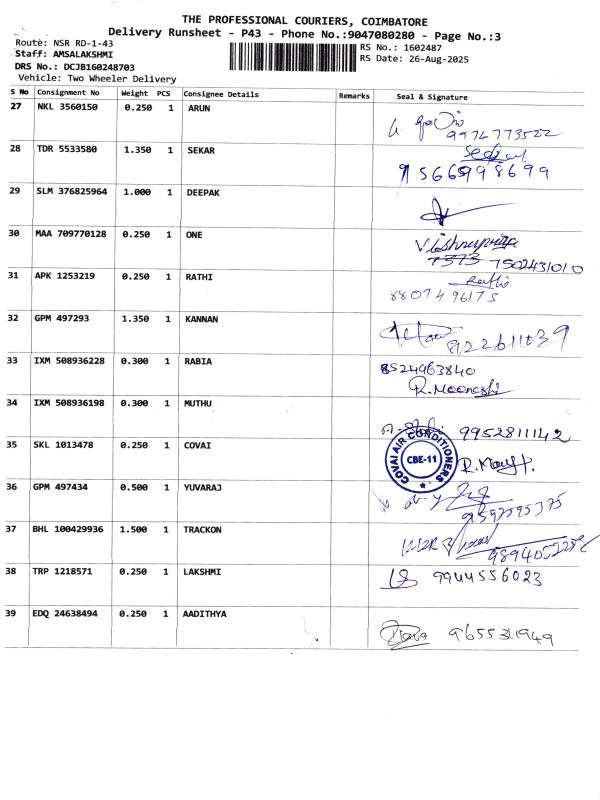 THE PROFESSIONAL COURIERS, COIMBATORE
Delivery Runsheet - P43 - Phone No.:9047080280 - Page No.:3
Route: NSR RD-1-43
RS No.: 1602487
Staff: AMSALAKSHMI
RS Date: 26-Aug-2025
DRS No.: DCJB160248703
Vehicle: Two Wheeler Delivery
S No Consignment No Weight PCS Consignee Details Remarks Seal & Signature
27 NKL 3560150 0.250 1 ARUN
9974773522
28 TDR 5533580 1.350 1 SEKAR
9566998699
29 SLM 376825964 1.000 1 DEEPAK
30 MAA 709770128 0.250 1 ONE
Vishnupriya
7373 7502431010
31 APK 1253219 0.250 1 RATHI
Rathi
8807496175
32 GPM 497293 1.350 1 KANNAN
9122611039
33 IXM 508936228 0.300 1 RABIA
8524963840
R.Meenakshi
34 IXM 508936198 0.300 1 MUTHU
9952811142
35 SKL 1013478 0.250 1 COVAI
COVAI AIR CONDITIONERS
CBE-11
36 GPM 497434 0.500 1 YUVARAJ
37 BHL 100429936 1.500 1 TRACKON
38 TRP 1218571 0.250 1 LAKSHMI
9944556023
39 EDQ 24638494 0.250 1 AADITHYA
9655311949